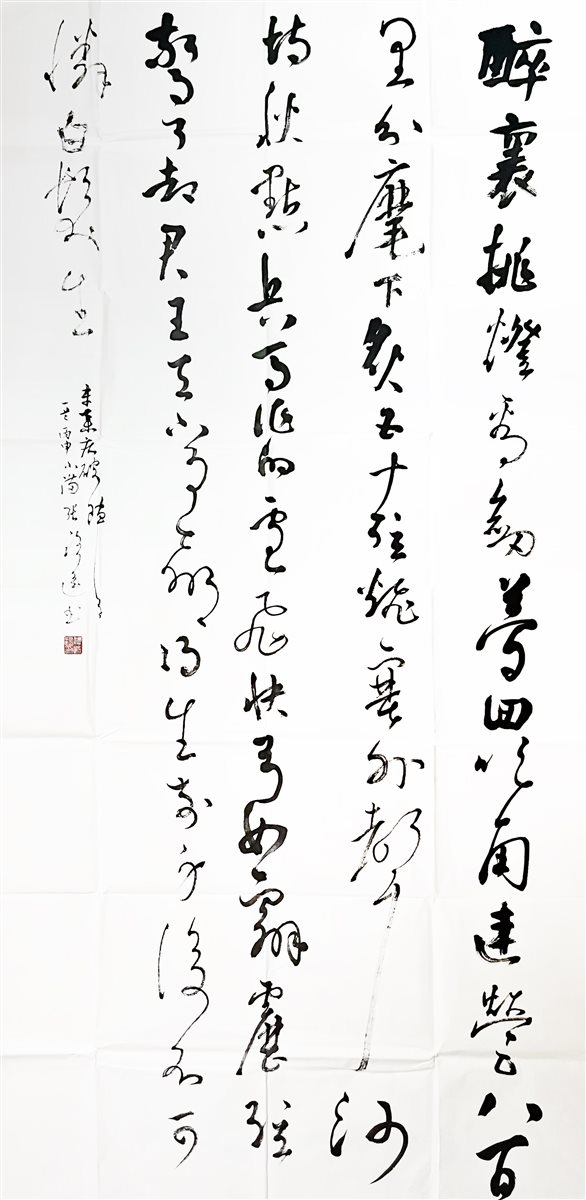 醉裏挑燈看劍夢回吹角連營八百
里分麾下炙五十弦翻塞外聲沙
場秋點兵馬作的盧飛快弓如霹靂弦
驚了却君王天下事贏得生前身後名可
憐白髮生
辛棄疾破陣子
丙申小滿張書